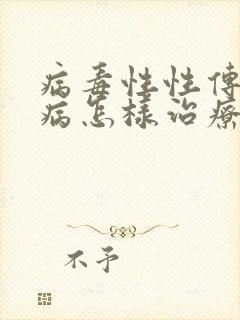 病毒性性传
病怎样治疗
不予